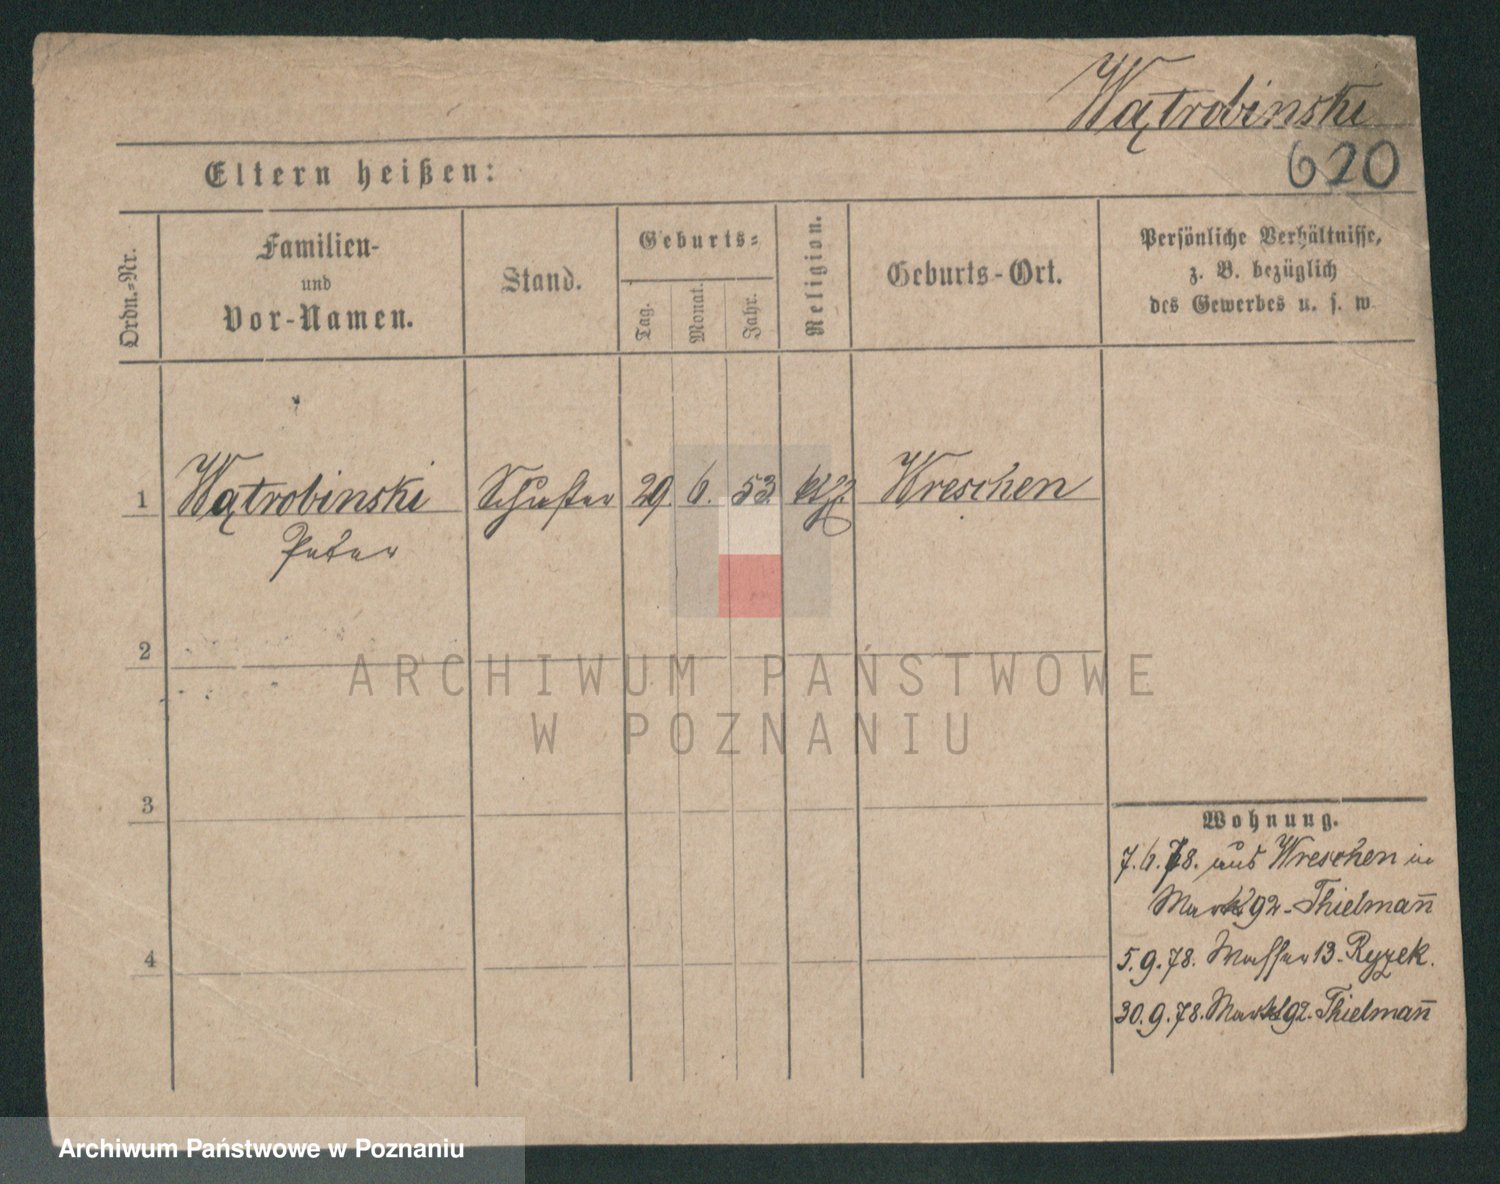 Wątrobinski
620
Eltern heißen:
Ordn.-Nr.
Familien-
und
Vor-Namen.
Stand.
Geburts-
Tag.
Monat.
Jahr.
Religion.
Geburts-Ort.
Persönliche Verhältnisse,
z. B. bezüglich
des Gewerbes u. s. w.
1 Wątrobinski Schuster 29. 6. 53. kth. Wreschen
Peter
2
3
4
Wohnung.
7.6.78. aus Wreschen in
Markt 92 - Thielmañ
5.9.78. Wasser 13. Ryzek.
30.9.78. Markt 92. Thielmañ
ARCHIWUM PAŃSTWOWE
W POZNANIU
Archiwum Państwowe w Poznaniu